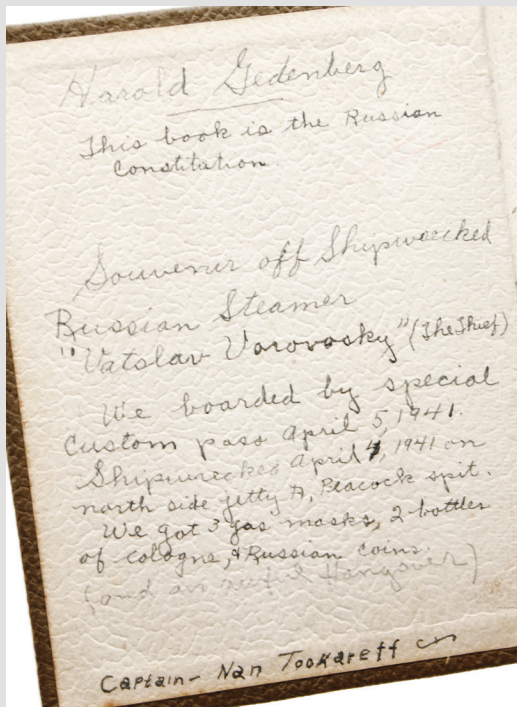 Harold Gedenberg
This book is the Russian
Constitution.
Souvenir off Shipwrecked
Russian Steamer
"Vatslav Vorovosky" (The Thief)
We boarded by special
Custom pass April 5, 1941.
Shipwrecked April 4, 1941 on
north side jetty A, Peacock spit.
We got 3 gas masks, 2 bottles
of cologne, & Russian coins.
(and an awful Hangover)
Captain - Nan Tookareff